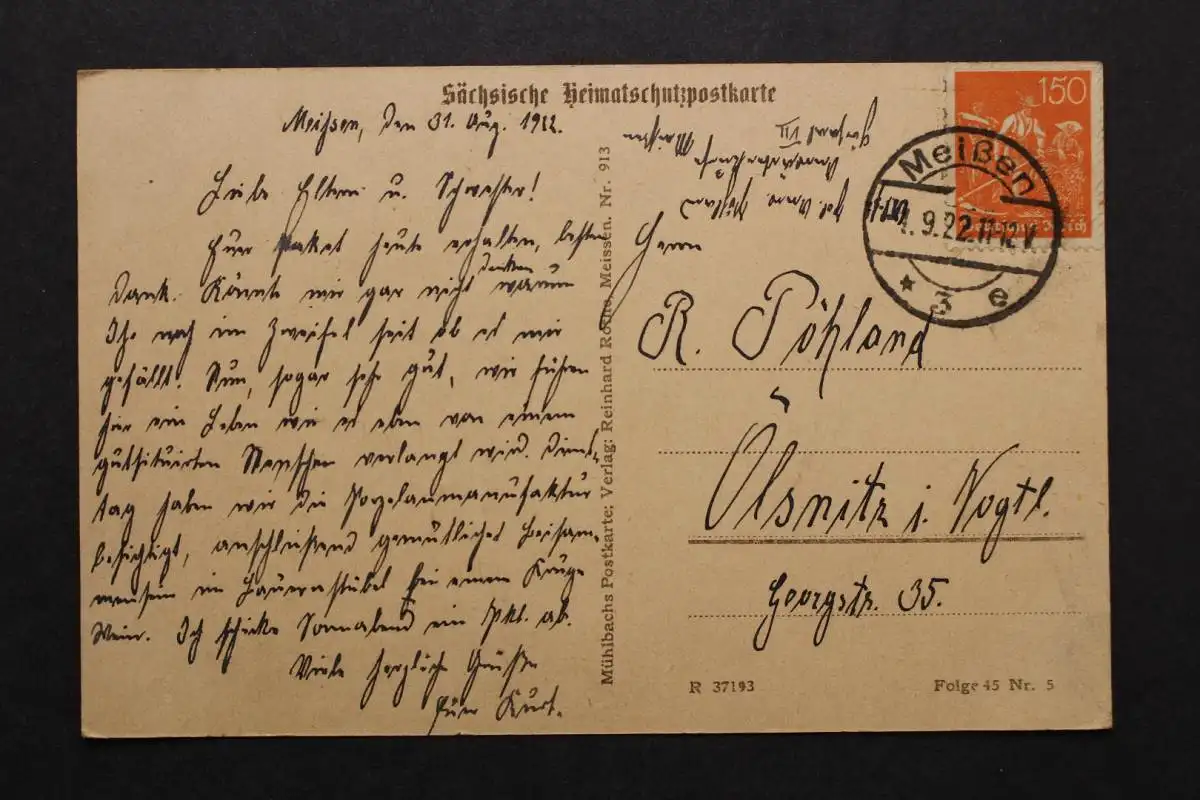 Sächsische Heimatschutzpostkarte
Meissen, den 31. Aug. 1922.
Liebe Eltern u. Schwester!
Euer Paket heute erhalten, besten
Dank. Könnte mir gar nicht denken warum
Ihr noch im Zweifel seit ob es mir
gefällt. Nun, sogar sehr gut, wir führen
hier ein Leben wie es eben von einem
gutsituirten Menschen verlangt wird. Diens-
tag haben wir die Porzelanmanufaktur
besichtigt, anschließend gemütliches Beisam-
mensein im Bauernstübel bei einem Kruge
Wein. Ich schicke Sonnabend ein Pkt. ab.
Viele herzliche Grüße
Euer Kurt.
Mühlbachs Postkarte; Verlag: Reinhard Rothe, Meissen. Nr. 913
Pöhland
Meissen
VII
150
Deutsches Reich
Meißen
1.9.22.11-12 V
* 3 e
Herrn
R. Pöhland
Ölsnitz i. Vogtl.
Georgstr. 35.
R 37193
Folge 45 Nr. 5